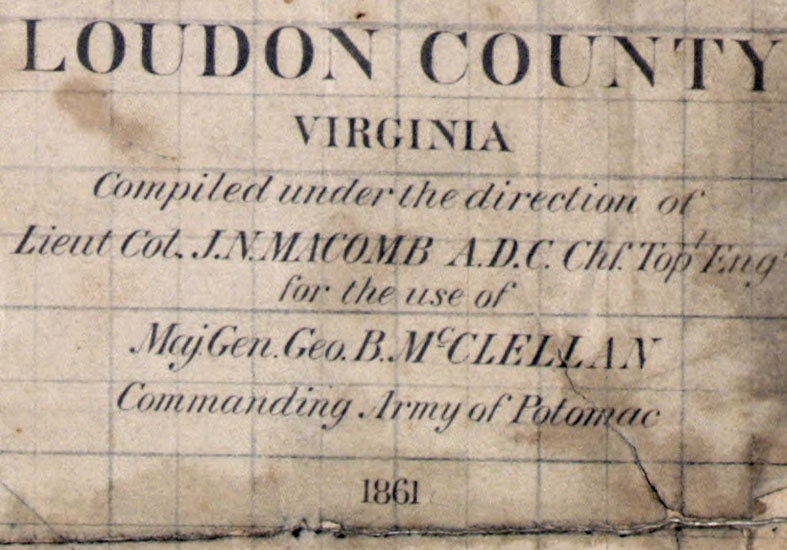 LOUDON COUNTY
VIRGINIA
Compiled under the direction of
Lieut Col. J.N.MACOMB A.D.C. Chf. Topˡ Engʳ
for the use of
Maj.Gen.Geo.B.MᶜCLELLAN
Commanding Army of Potomac
1861